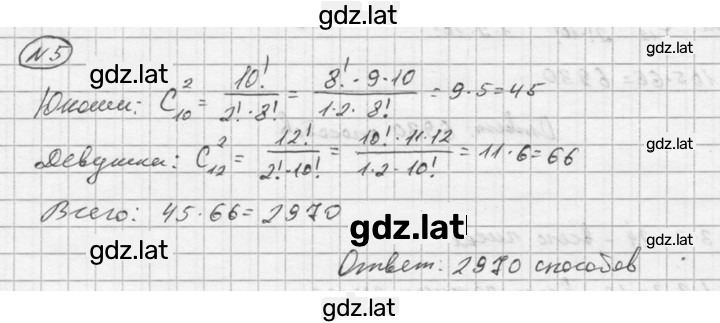 gdz.lat
N5
gdz.lat
gdz.lat
Юноши: C₁₀² = 10!/(2!·8!) = (8!·9·10)/(1·2·8!) = 9·5=45
gdz.lat
Девушки: C₁₂² = 12!/(2!·10!) = (10!·11·12)/(1·2·10!) = 11·6=66
gdz.lat
gdz.lat
Всего: 45·66=2970
gdz.lat
gdz.lat
gdz.lat
Ответ: 2970 способов
gdz.lat